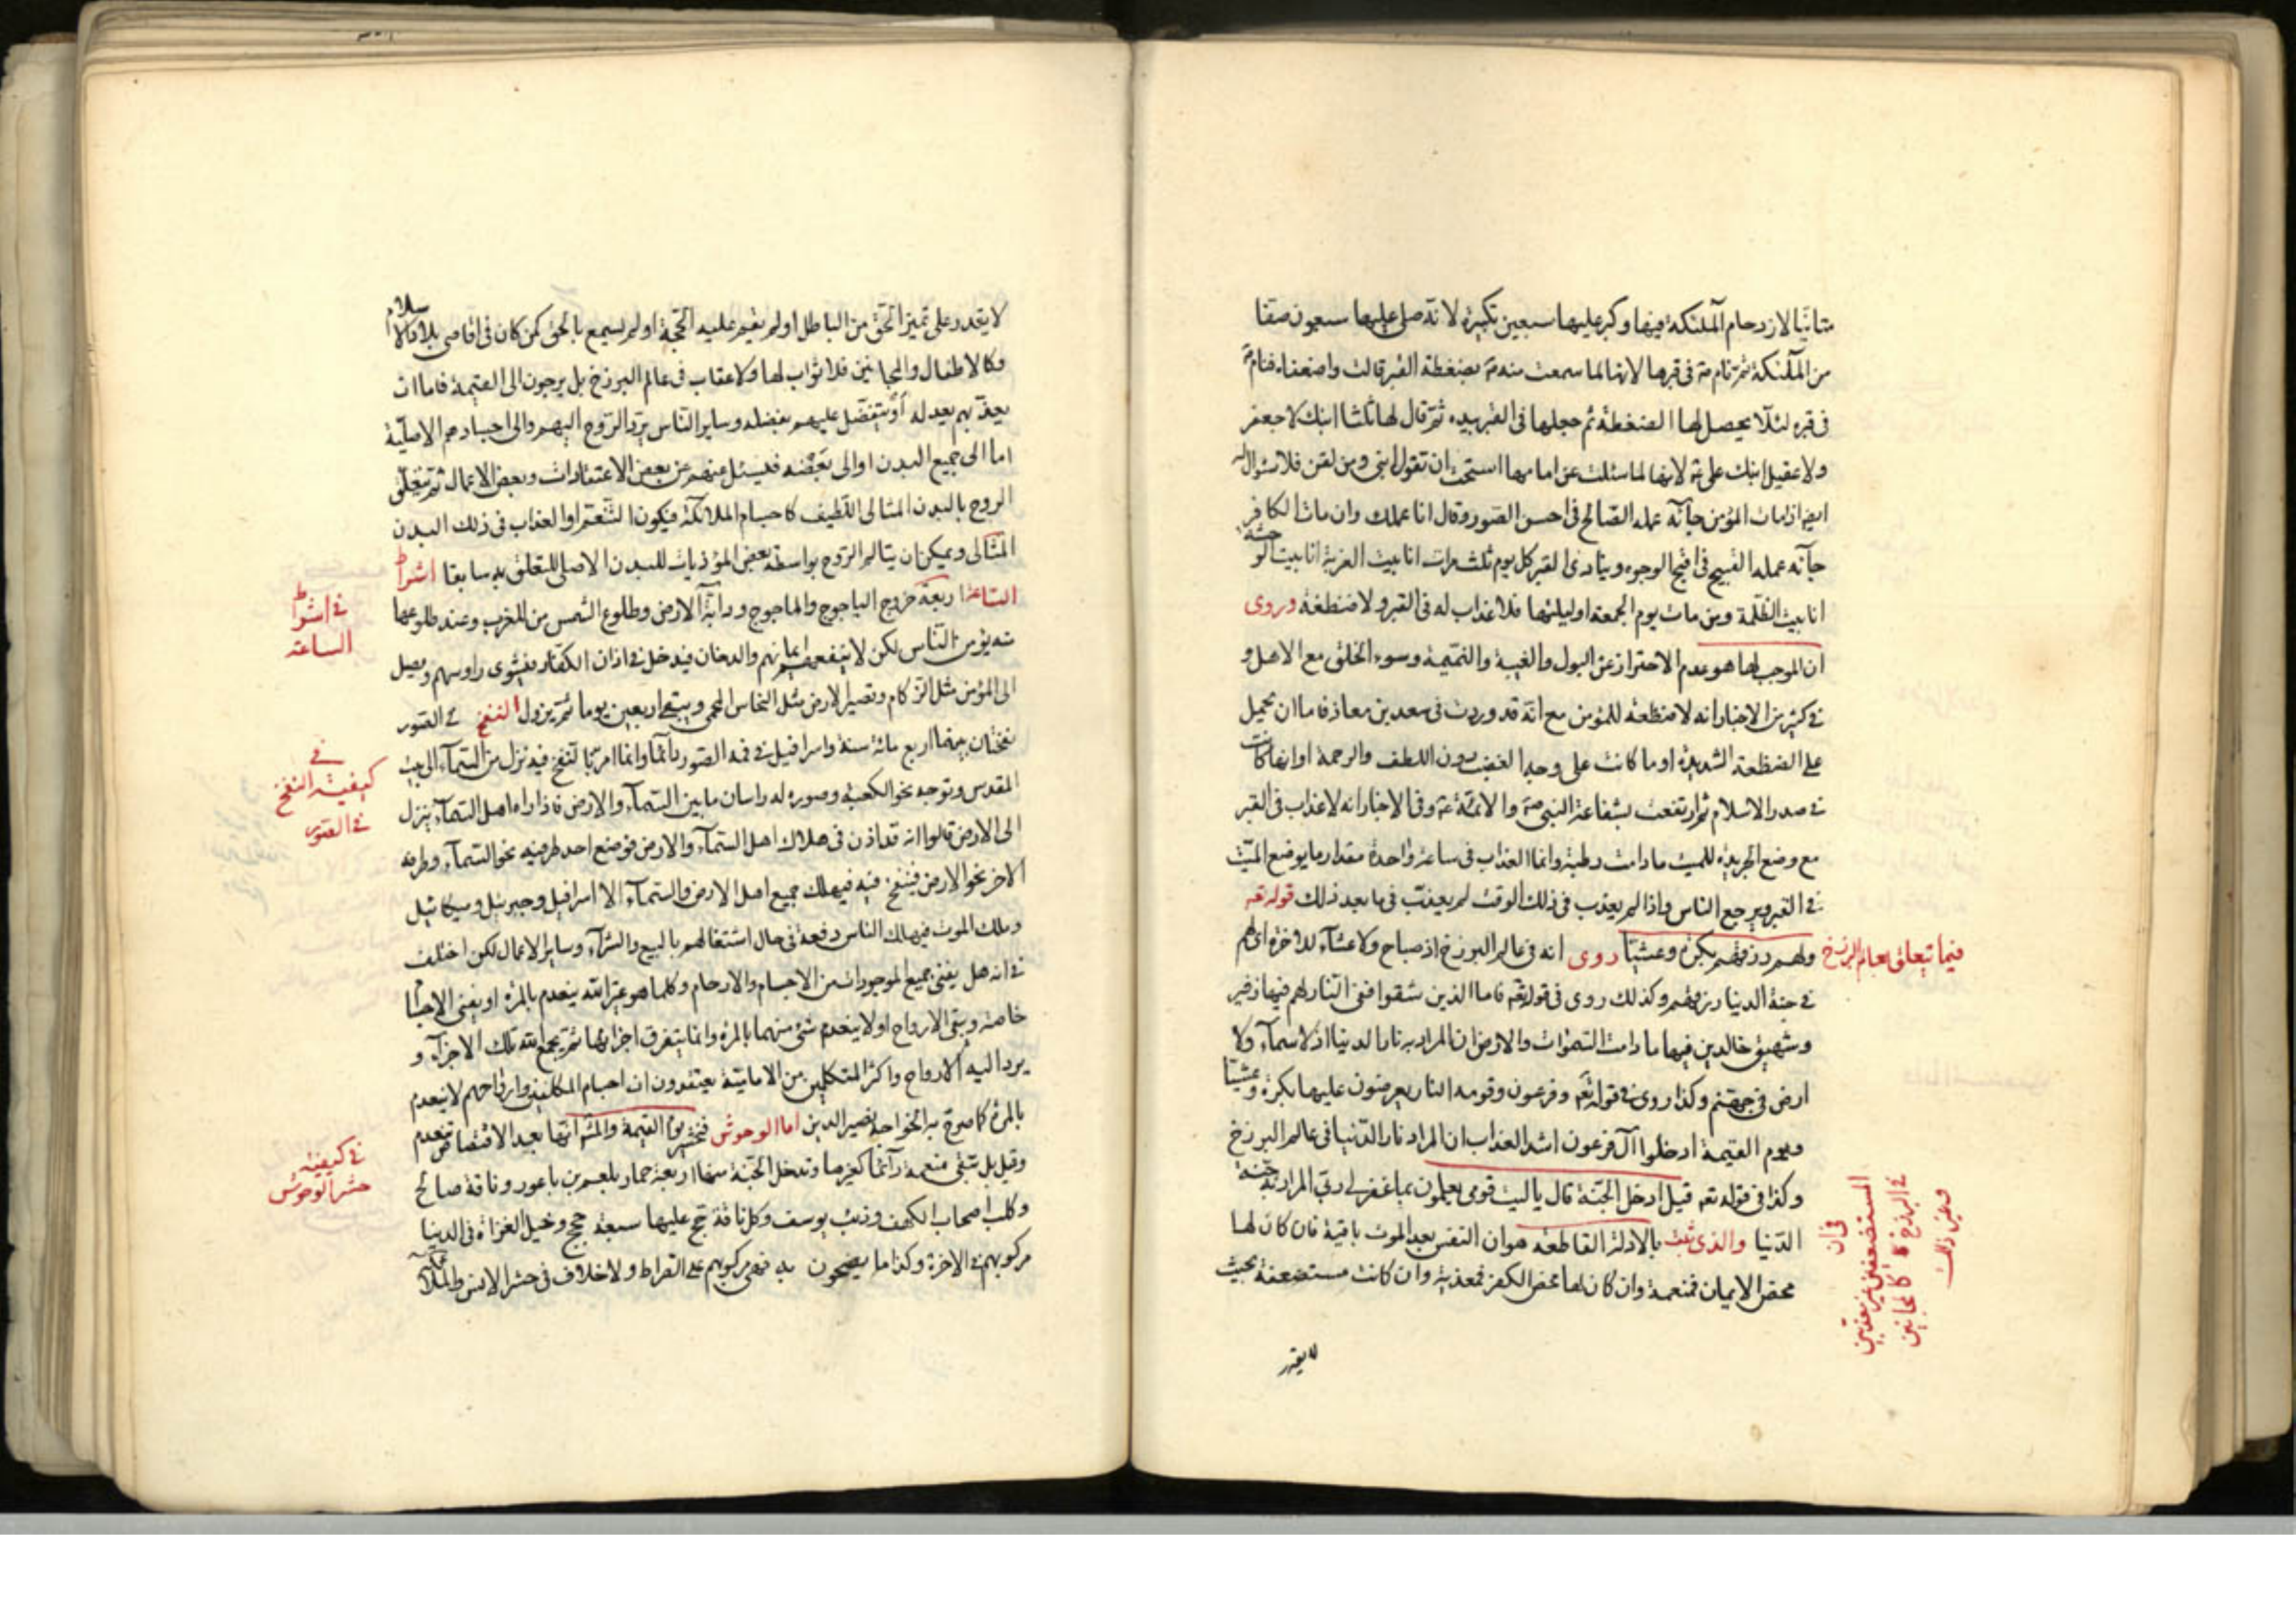 متانيا لازدحام الملئكة فيها وكبر عليها سبعين تكبيرة لانه صلى عليها سبعون صفا
من الملئكة ثم نام في قبرها لانها لما سمعت منه بضغطة القبر قالت واضعفاه فنام
في قبره لئلا يحصل لها الضغطة ثم جعلها في القبر بيده ثم قال لها ثلثا ابنك لا جعفر
ولا عقيل ابنك علي لانها لما سئلت عن امامها استحت ان تقول ابني ومن لقن فلا سئوال له
اذا مات المؤمن جآئه عمله الصالح في احسن الصور وقال انا عملك وان مات الكافر
جآئه عمله القبيح في اقبح الوجوه وينادى القبر كل يوم ثلث مرات انا بيت الغربة انا بيت الوحشة
انا بيت الظلمة ومن مات يوم الجمعة او ليلتها فلا عذاب له في القبر ولا ضغطة وروى
ان الموجب لها هو عدم الاحتراز عن البول والغيبة والنميمة وسوء الخلق مع الاهل و
في كثير من الاخبار انه لا ضغطة للمؤمن مع انه قد وردت في سعد بن معاذ فاما ان يحمل
على الضغطة الشديدة او ما كانت على وجه الغضب دون اللطف والرحمة او انها كانت
في صدر الاسلام ثم ارتفعت بشفاعة النبي والائمة وفي الاخبار انه لا عذاب في القبر
مع وضع الجريدة للميت ما دامت رطبة وانما العذاب في ساعة واحدة مقدار ما يوضع الميت
في القبر ويرجع الناس واذا لم يعذب في ذلك الوقت لم يعذب في ما بعد ذلك قوله تعه
فيما تتعلق بعالم البرزخ
ولهم رزقهم بكرة وعشيا روى انه في عالم البرزخ اذ صباح ولا عشآء للاخرة اى لهم
في جنة الدنيا رزقهم وكذلك روى في قوله تعه فاما الذين شقوا ففي النار لهم فيها زفير
وشهيق خالدين فيها ما دامت السموات والارض ان المراد به نار الدنيا اذ لا سمآء ولا
ارض في جهنم وكذا روى في قوله تعه وفرعون وقومه النار يعرضون عليها بكرة وعشيا
ويوم القيمة ادخلوا آل فرعون اشد العذاب ان المراد نار الدنيا في عالم البرزخ
وكذا في قوله تعه قيل ادخل الجنة قال يا ليت قومي يعلمون بما غفر لي ربي المراد به جنة
الدنيا والذي ثبت بالادلة القاطعة هو ان النفس بعد الموت باقية فان كان لها
محض الايمان فمنعمة وان كان لها محض الكفر فمعذبة وان كانت مستضعفة بحيث
في ان
المستضعفين غير معذبين
في البرزخ كالمجانين
وغير ذلك
لا يقدر
لا يقدر على تميز الحق من الباطل او لم يقم عليه الحجة او لم يسمع بالحق كمن كان في اقاصى بلاد الاسلام
وكالاطفال والمجانين فلا ثواب لها ولا عقاب في عالم البرزخ بل يرجون الى القيمة فاما ان
يعذبهم بعدله او يتفضل عليهم بفضله وساير الناس يرد الروح اليهم والى اجسادهم الاصلية
اما الى جميع البدن او الى بعضه فيسئل عنهم عن بعض الاعتقادات وبعض الاعمال ثم تتعلق
الروح بالبدن المثالى اللطيف كاجسام الملائكة فيكون التنعم او العذاب في ذلك البدن
المثالى ويمكن ان يتالم الروح بواسطة بعض المؤذيات للبدن الاصلى للتعلق به سابقا اشراط
في اشراط
الساعة
الساعة اربعة خروج الياجوج والماجوج ودابة الارض وطلوع الشمس من المغرب وعند طلوعها
يؤمن الناس لكن لا ينفعهم ايمانهم والدخان فيدخل في اذان الكفار فيشوى راوسهم ويصل
الى المؤمن مثل الزكام وتصير الارض مثل النحاس المحمى ويبقى اربعين يوما ثم يزول النفخ في الصور
في
كيفية النفخ
في الصور
نفختان بينهما اربع مائة سنة واسرافيل في فمه الصور دآئما وانما امر بالنفخ فيه نزل من السمآء الى بيت
المقدس وتوجه نحو الكعبة وصوره له راسان ما بين السمآء والارض فاذا راه اهل السمآء ينزل
الى الارض قالوا انه قد اذن في هلاك اهل السمآء والارض فوضع احد طرفيه نحو السمآء وطرفه
الاخر نحو الارض فينفخ فيه فيهلك جميع اهل الارض والسمآء الا اسرافيل وجبرئيل وميكائيل
وملك الموت فيهلك الناس دفعة في حال اشتغالهم بالبيع والشرآء وساير الاعمال لكن اختلف
في انه هل يفنى جميع الموجودات من الاجسام والارحام وكلما هو غير الله ينعدم بالمرة او يفنى الاجسام
خاصة ويبقى الارواح او لا ينعدم شئ منهما بالمرة وانما يتفرق اجزائها ثم يجمع الله تلك الاجزآء و
يرد اليه الارواح واكثر المتكلمين من الامامية يعتقدون ان اجسام المكلفين وارواحهم لا ينعدم
بالمرة كما صرح به الخواجه نصير الدين اما الوحوش فتحشر يوم القيمة والمشهور انها بعد الاقتصاص تنعدم
في كيفية
حشر الوحوش
وقيل بل تبقى منعمة دآئما كغيرها وتدخل الجنة منها اربعة حمار بلعم بن باعور وناقة صالح
وكلب اصحاب الكهف وذئب يوسف وكل ناقة حج عليها سبعة حجج وخيل الغزاة في الدنيا
مركوبهم في الاخرة وكذا ما يضحون به فهي مركوبهم على الصراط ولا خلاف في حشر الانس والملائكة